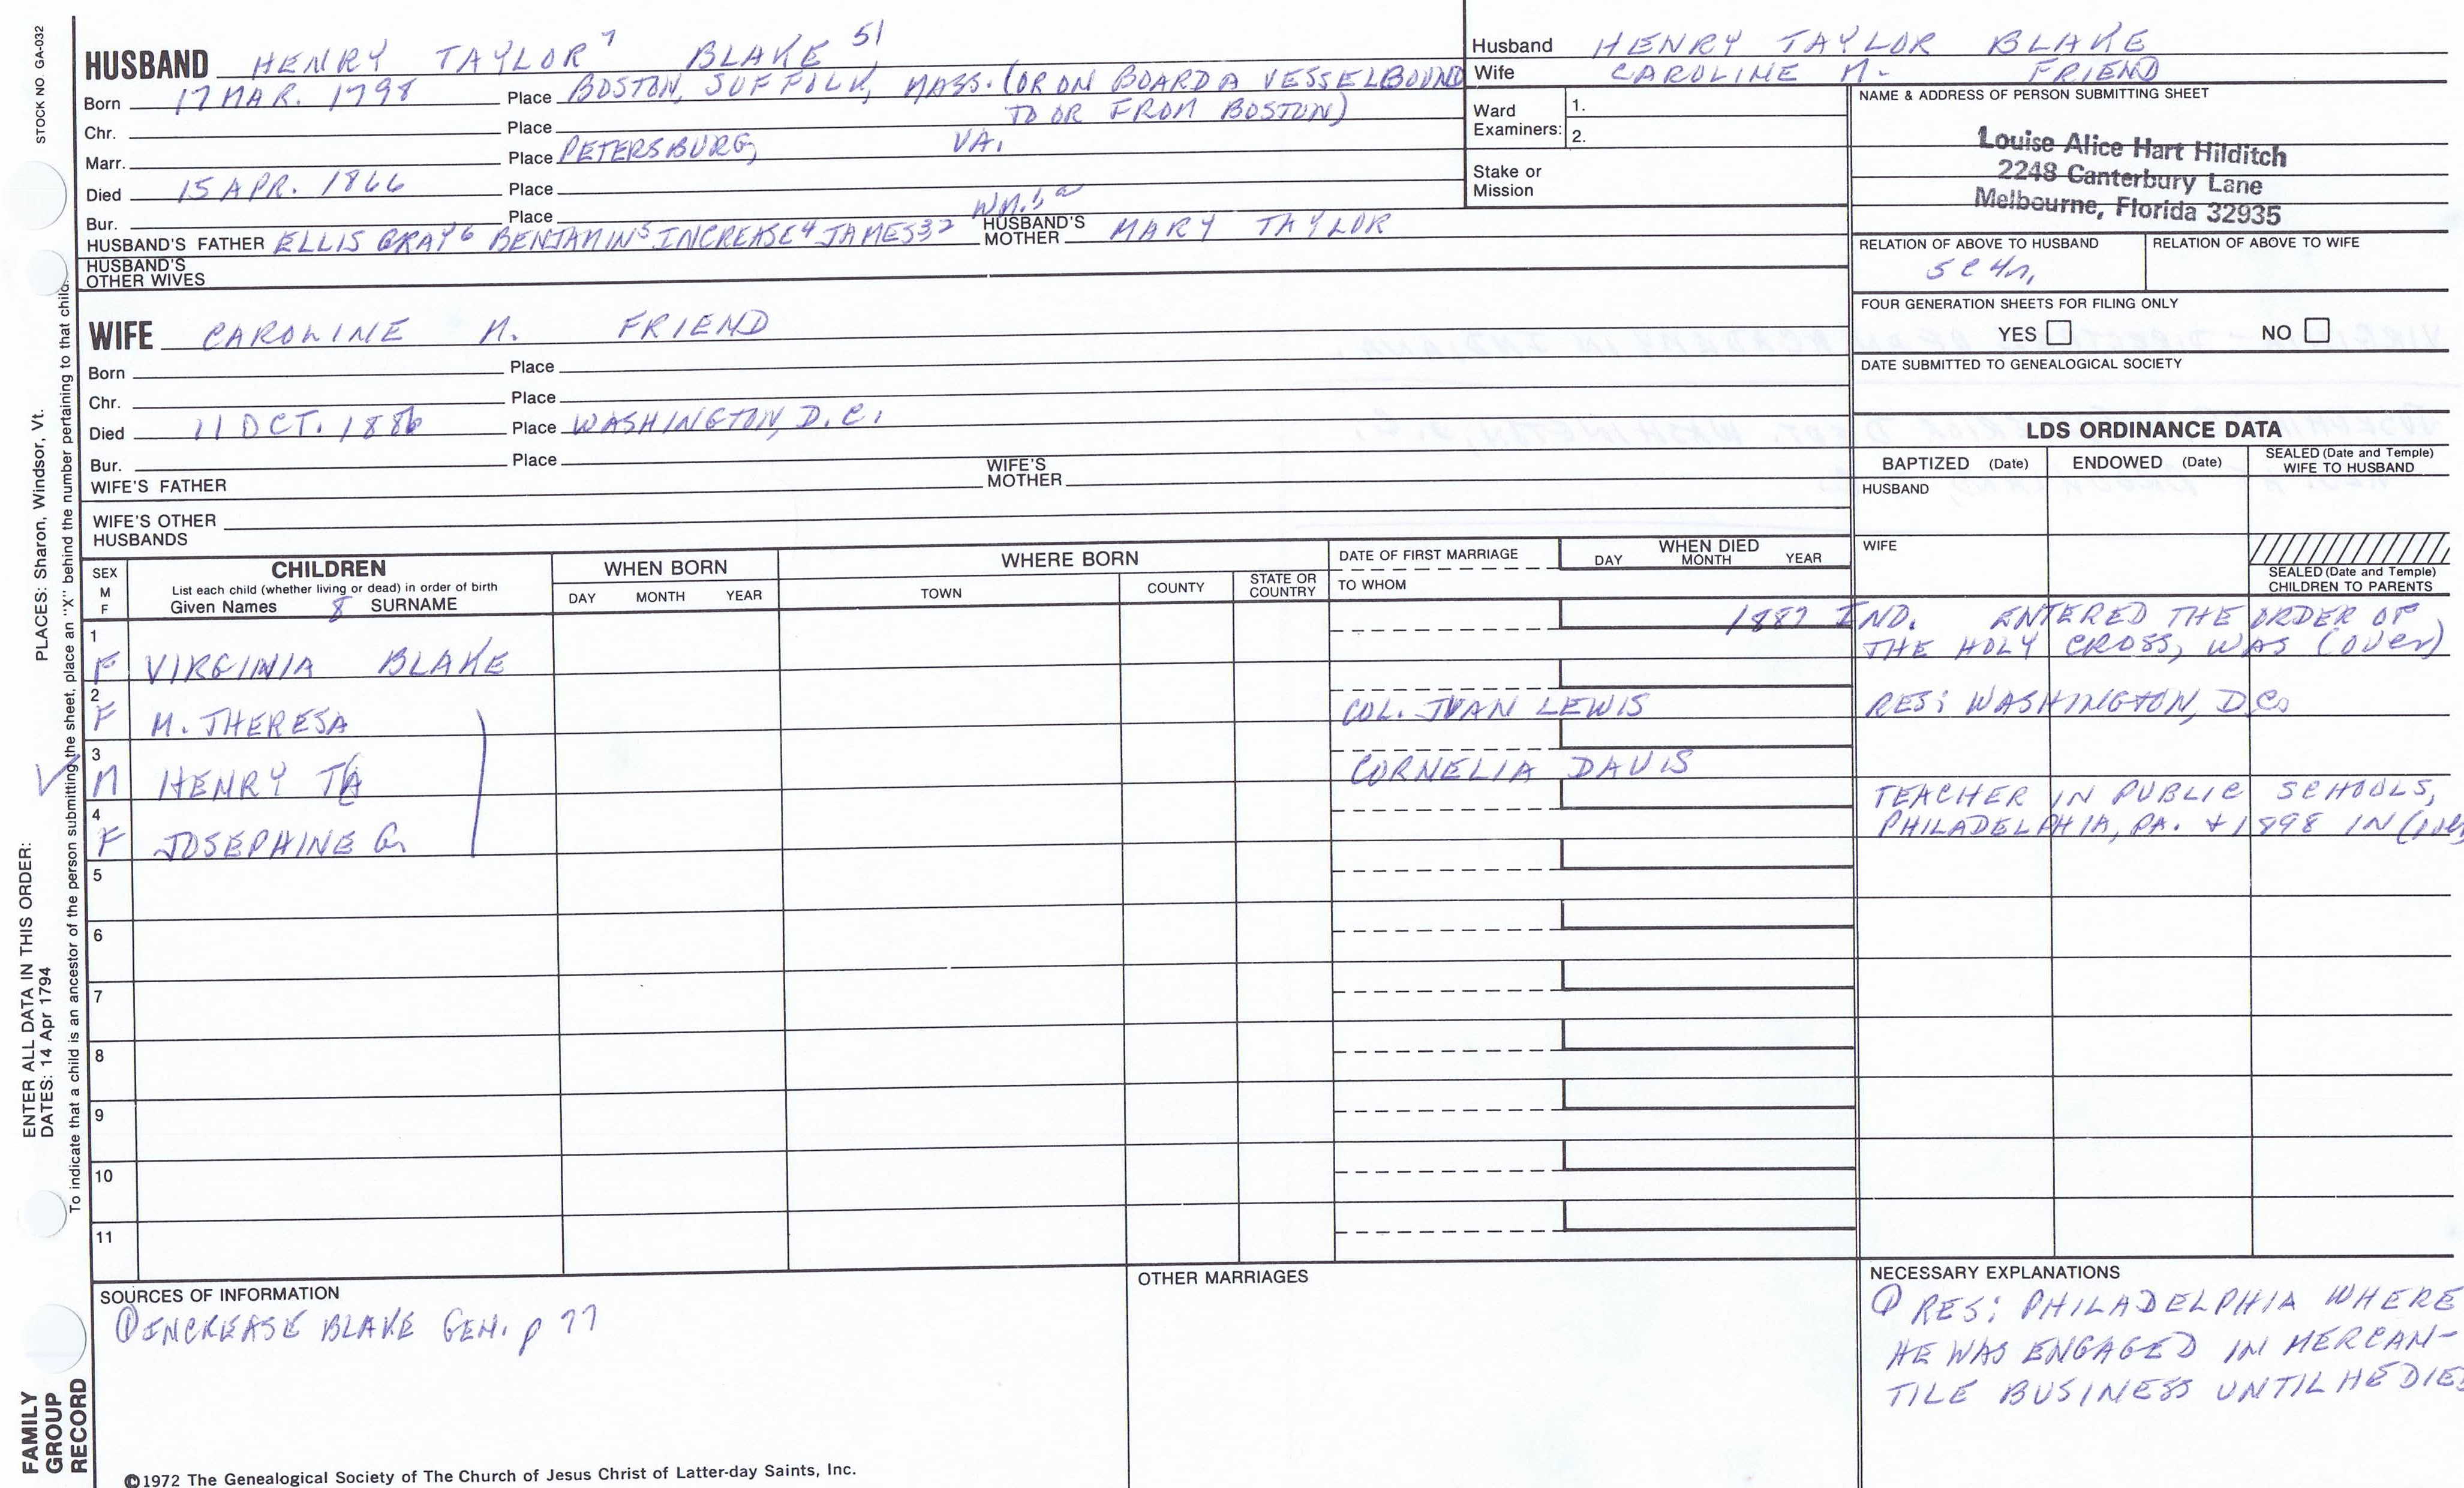 STOCK NO. GA-032
HUSBAND HENRY TAYLOR 7 BLAKE 51
Born 17 MAR. 1798 Place BOSTON, SUFFOLK, MASS. (OR ON BOARD A VESSEL BOUND
Chr. Place TO OR FROM BOSTON)
Marr. Place PETERSBURG, VA.
Died 15 APR. 1866 Place
Bur. Place
HUSBAND'S FATHER ELLIS GRAY6 BENJAMIN5 INCREASE4 JAMES32 WM.1 HUSBAND'S MOTHER MARY TAYLOR
HUSBAND'S
OTHER WIVES
WIFE CAROLINE M. FRIEND
Born Place
Chr. Place
Died 11 OCT. 1886 Place WASHINGTON, D.C.
Bur. Place
WIFE'S FATHER WIFE'S MOTHER
WIFE'S OTHER
HUSBANDS
Husband HENRY TAYLOR BLAKE
Wife CAROLINE M. FRIEND
Ward
Examiners:
1.
2.
Stake or
Mission
NAME & ADDRESS OF PERSON SUBMITTING SHEET
Louise Alice Hart Hilditch
2248 Canterbury Lane
Melbourne, Florida 32935
RELATION OF ABOVE TO HUSBAND RELATION OF ABOVE TO WIFE
5C4r,
FOUR GENERATION SHEETS FOR FILING ONLY
YES NO
DATE SUBMITTED TO GENEALOGICAL SOCIETY
LDS ORDINANCE DATA
BAPTIZED (Date) ENDOWED (Date) SEALED (Date and Temple)
WIFE TO HUSBAND
HUSBAND
WIFE
SEALED (Date and Temple)
CHILDREN TO PARENTS
SEX
M
F
CHILDREN
List each child (whether living or dead) in order of birth
Given Names 8 SURNAME
WHEN BORN
DAY MONTH YEAR
WHERE BORN
TOWN COUNTY STATE OR
COUNTRY
DATE OF FIRST MARRIAGE
TO WHOM
WHEN DIED
DAY MONTH YEAR
1 1887 IND. ENTERED THE ORDER OF
F VIRGINIA BLAKE THE HOLY CROSS, WAS (OVER)
2
F M. THERESA COL. JUAN LEWIS RES: WASHINGTON, D.C.
3
M HENRY T. CORNELIA DAVIS
4 TEACHER IN PUBLIC SCHOOLS,
F JOSEPHINE G. PHILADELPHIA, PA. + 1898 IN (over
5
6
7
8
9
10
11
SOURCES OF INFORMATION
① INCREASE BLAKE GEN. p 77
OTHER MARRIAGES
NECESSARY EXPLANATIONS
① RES: PHILADELPHIA WHERE
HE WAS ENGAGED IN MERCAN-
TILE BUSINESS UNTIL HE DIED
©1972 The Genealogical Society of The Church of Jesus Christ of Latter-day Saints, Inc.
PLACES: Sharon, Windsor, Vt.
ENTER ALL DATA IN THIS ORDER:
DATES: 14 Apr 1794
To indicate that a child is an ancestor of the person submitting the sheet, place an "X" behind the number pertaining to that child.
FAMILY
GROUP
RECORD